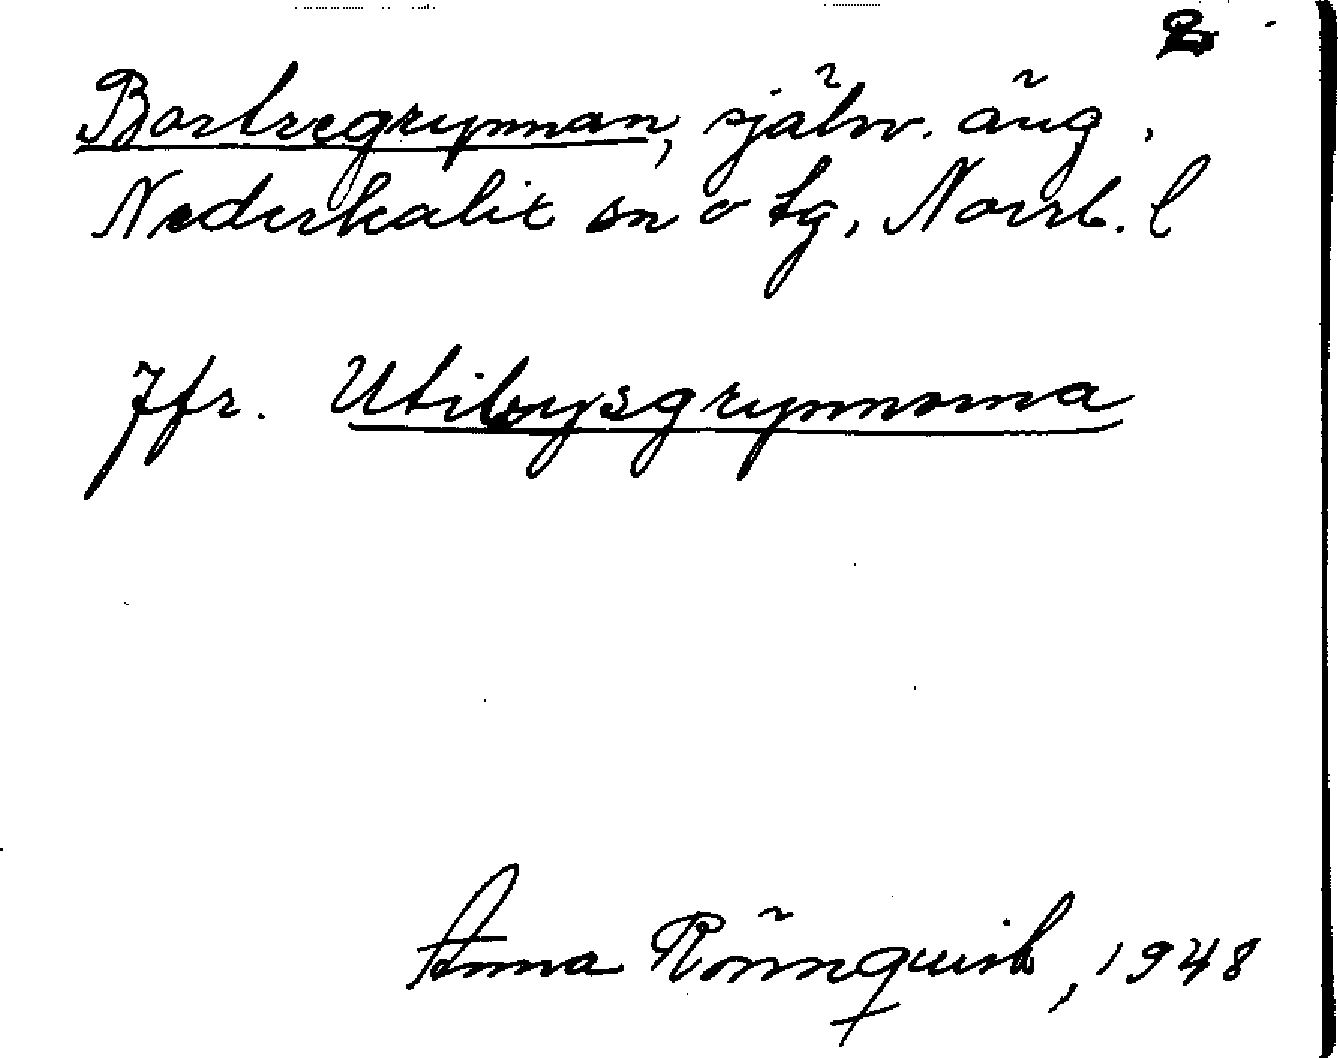 2
Bortregrynnan, självv. äng,
Nederkalix sn o tg, Norrb. l
Jfr. Utibysgrynnorna
Anna Rönnquist, 1948